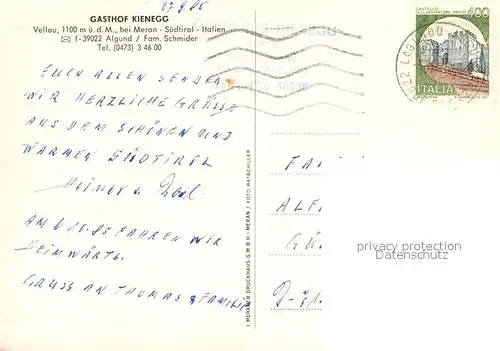 27.9.85
GASTHOF KIENEGG
Vellau, 1100 m ü. d. M., bei Meran - Südtirol - Italien
✉ I-39022 Algund / Fam. Schmider
Tel. (0473) 3 46 00
EUCH ALLEN SENDEN
WIR HERZLICHE GRÜSSE
AUS DEM SCHÖNEN UND
WARMEN SÜDTIROL
Heiner u.
AM 6.10.85 FAHREN WIR
HEIMWÄRTS.
GRUSS AN THOMAS & FAMILIE
I. MERANER DRUCKHAUS G.M.B.H. - MERAN / FOTO RATSCHILLER
400
ITALIA
FA
ALF
GÜ
D-
privacy protection
watermark